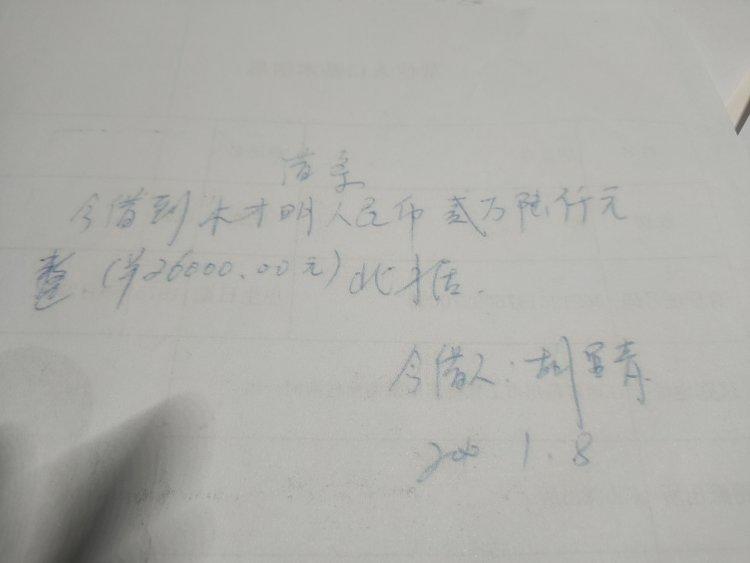 借条
今借到朱才明人民币贰万陆仟元
整（¥26000.00元）此据.
今借人：胡青
1.8